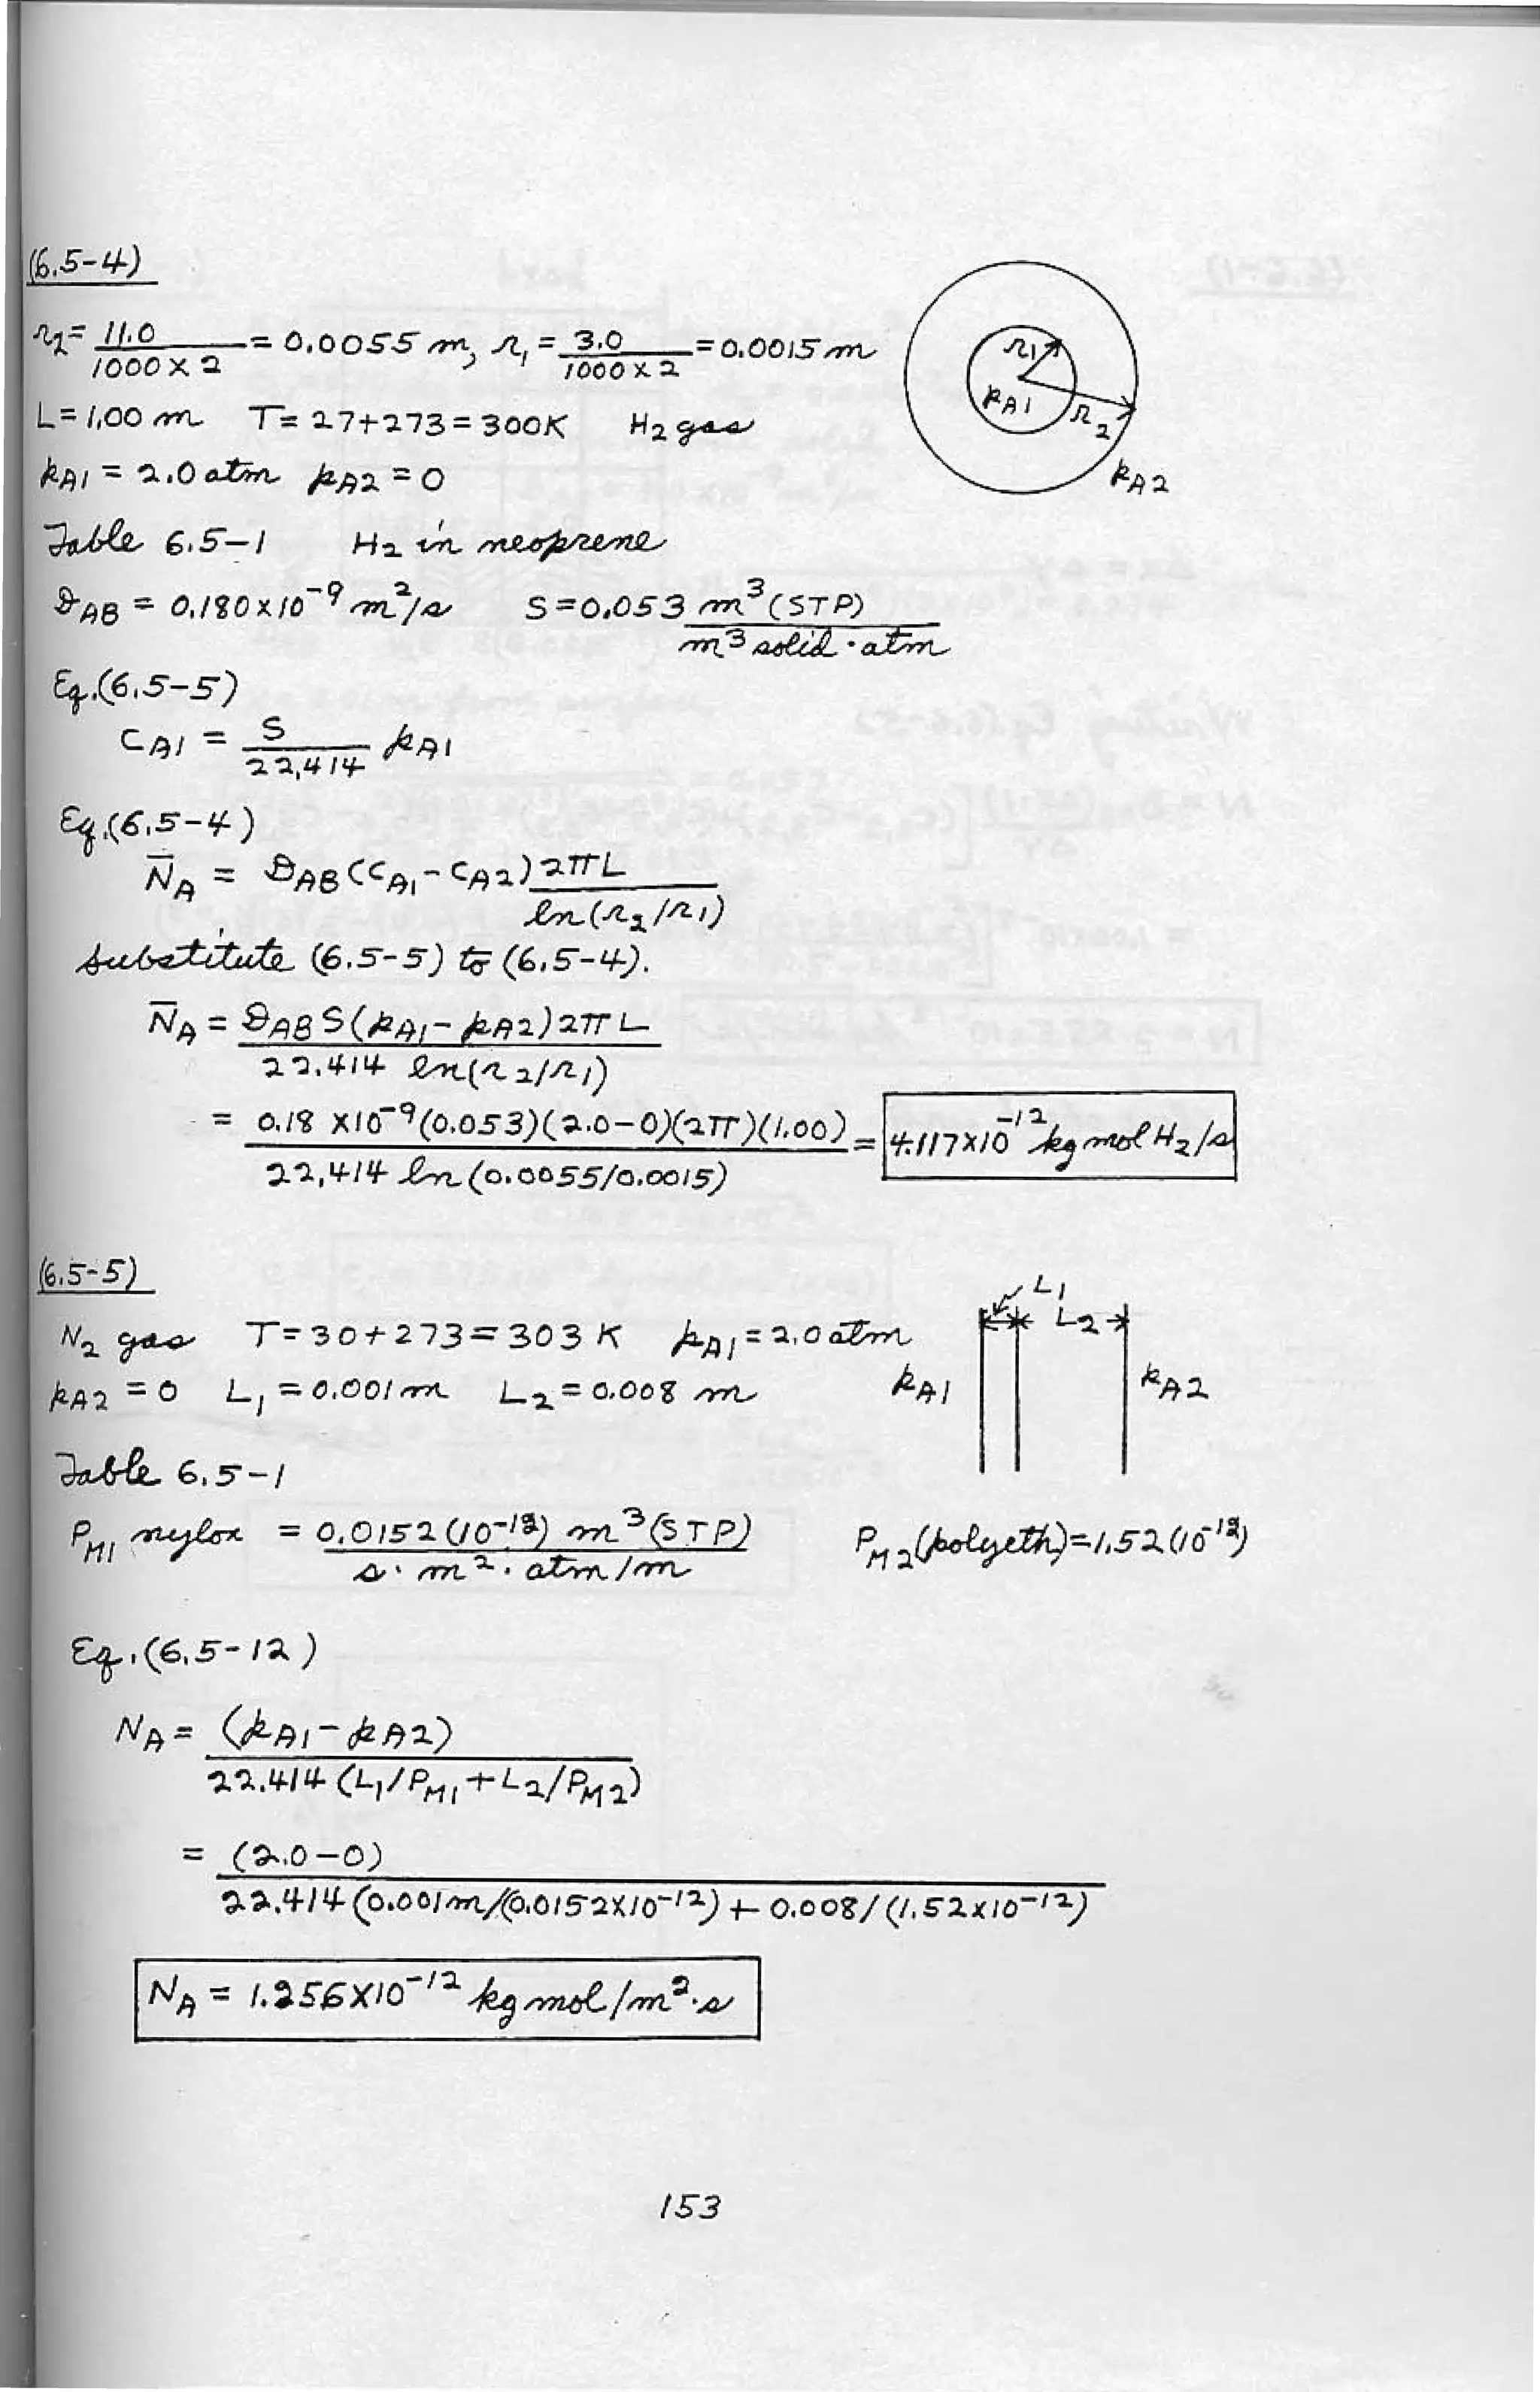 (6.5-4)
r2 = 11.0/(1000 x 2) = 0.0055 m, r1 = 3.0/(1000 x 2) = 0.0015 m
r1
pA1
r2
pA2
L = 1.00 m T = 27+273 = 300K H2 gas
pA1 = 2.0 atm pA2 = 0
Table 6.5-1 H2 in neoprene
DAB = 0.180x10^-9 m^2/s S = 0.053 m^3(STP)/(m^3 solid · atm)
Eq.(6.5-5)
CA1 = S/22.414 pA1
Eq.(6.5-4)
N̄A = DAB(CA1 - CA2) 2πL/ln(r2/r1)
substitute (6.5-5) to (6.5-4).
N̄A = DAB S(pA1 - pA2)2πL/(22.414 ln(r2/r1))
= 0.18 x10^-9(0.053)(2.0-0)(2π)(1.00)/(22.414 ln(0.0055/0.0015)) = 4.117x10^-12 kg mol H2/s
(6.5-5)
N2 gas T = 30+273 = 303 K pA1 = 2.0 atm
pA2 = 0 L1 = 0.001 m L2 = 0.008 m
L1
L2
pA1
pA2
Table 6.5-1
PM1 nylon = 0.0152(10^-12) m^3(STP)/(s · m^2 · atm/m) PM2(polyeth) = 1.52(10^-12)
Eq.(6.5-12)
NA = (pA1 - pA2)/(22.414(L1/PM1 + L2/PM2)
= (2.0-0)/(22.414(0.001m/(0.0152x10^-12) + 0.008/(1.52x10^-12)
NA = 1.256x10^-12 kg mol/m^2·s
153